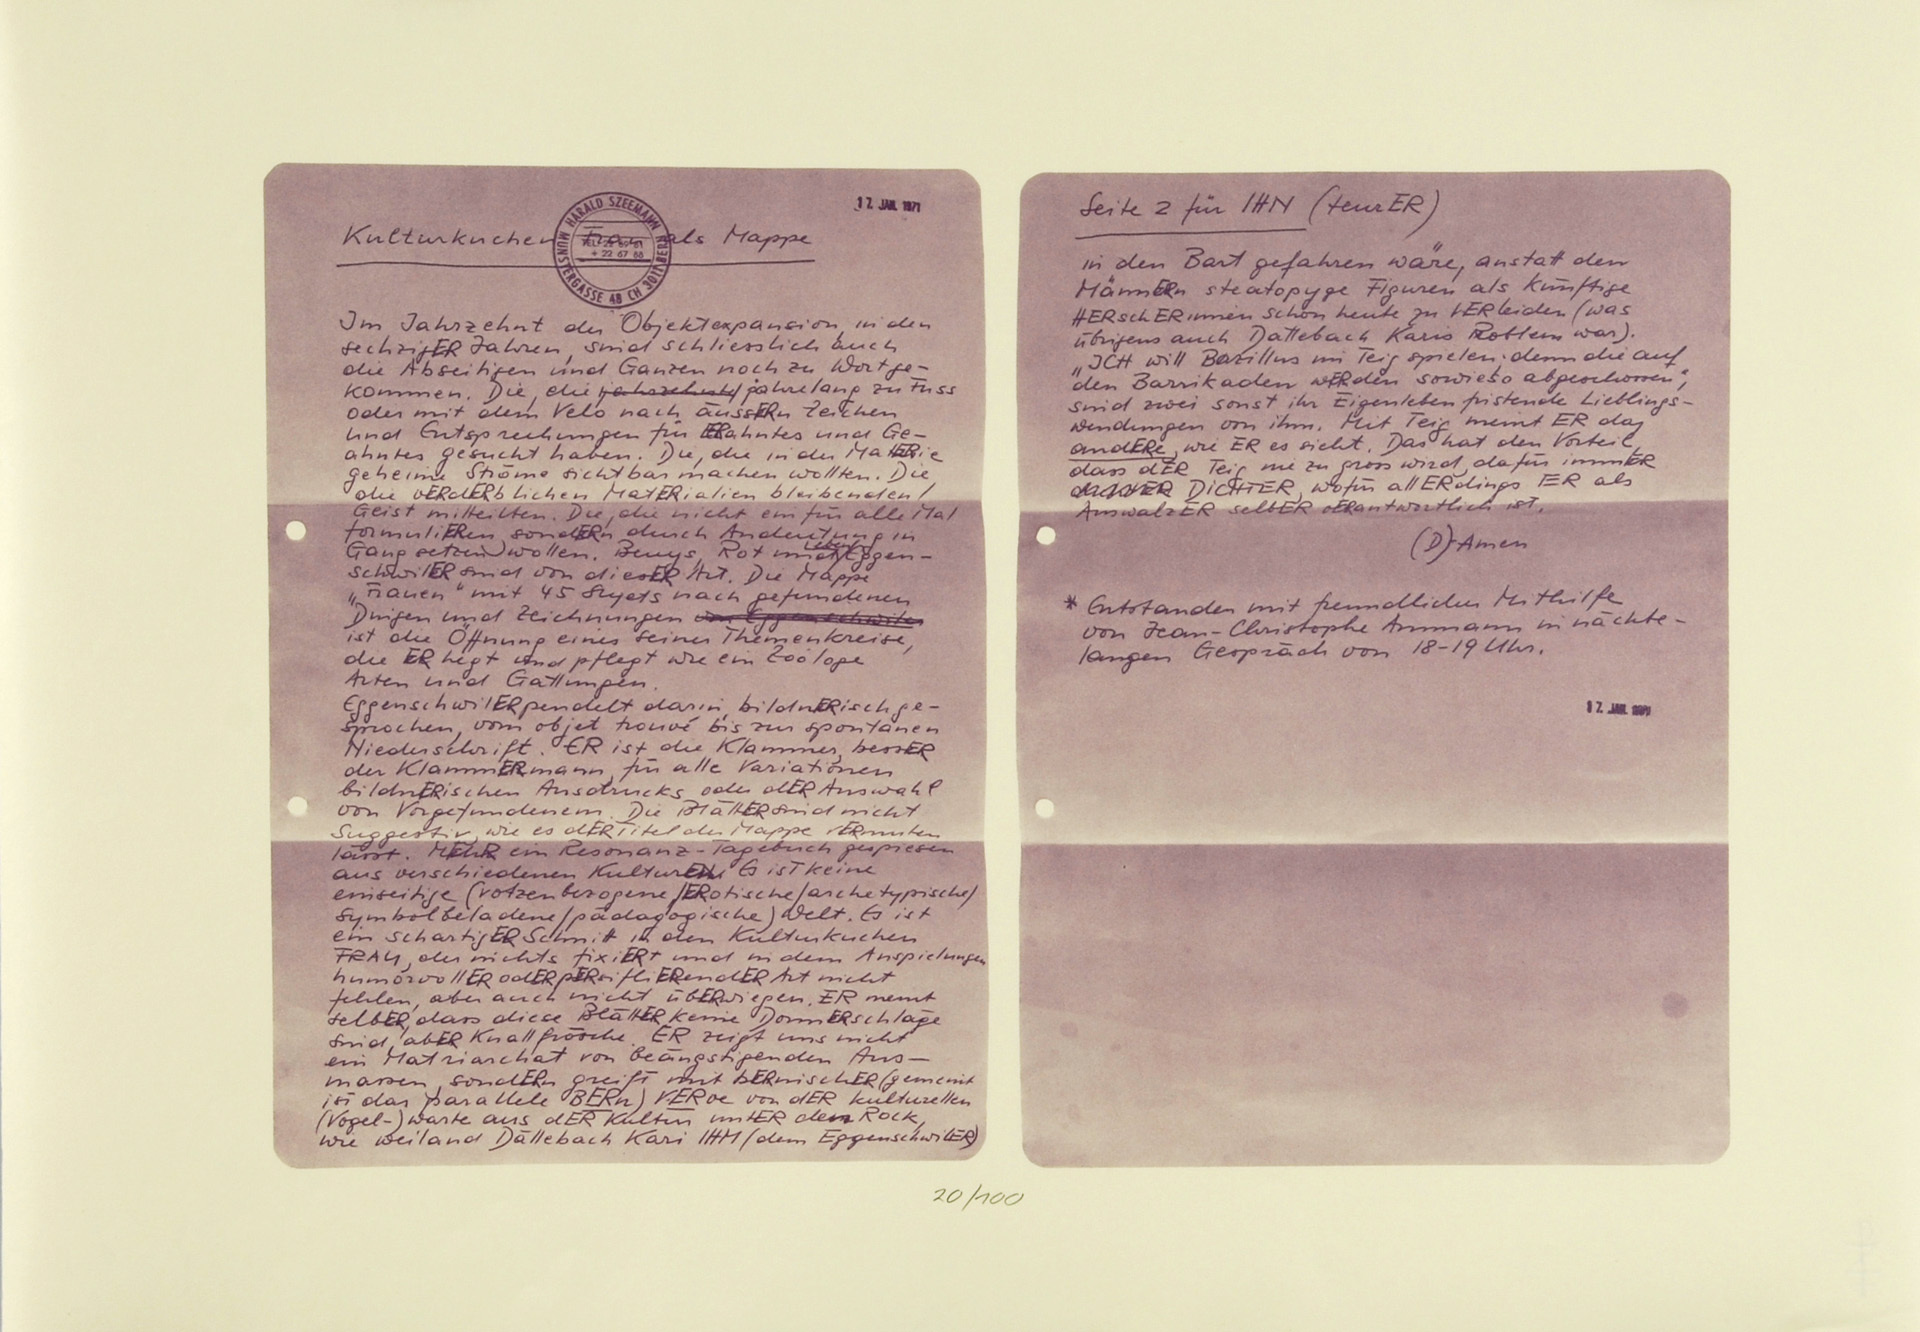 17. JAN. 1971
HARALD SZEEMANN
MÜNSTERGASSE 48 CH 3011 BERN
+ 22 67 68
Kulturkuchen Frau als Mappe
Im Jahrzehnt der Objektexpansion, in den
sechzigER Jahren, sind schliesslich auch
die Abseitigen und Ganzen noch zu Wort ge-
kommen. Die, die jahrzehnte jahrelang zu Fuss
oder mit dem Velo nach äussERn Zeichen
und Entsprechungen für ERahntes und Ge-
ahntes gesucht haben. Die, die in der MatERie
geheime Ströme sichtbar machen wollten. Die,
die vERdERblichen MatERialien bleibenden
Geist mitteilten. Die, die nicht ein für alle Mal
formuliERen, sondERn durch Andeutung in
Gang setzen wollen. Beuys, Rot und Eggen-
schwilER sind von diesER Art. Die Mappe
„Frauen" mit 45 Sujets nach gefundenen
Dingen und Zeichnungen von Eggenschwiler
ist die Öffnung eines seiner Themenkreise,
die ER hegt und pflegt wie ein Zoologe
Arten und Gattungen.
EggenschwilER pendelt darin, bildnERisch ge-
sprochen, vom objet trouvé bis zur spontanen
Niederschrift. ER ist die Klammer, bessER
der KlammERmann, für alle Variationen
bildnERischen Ausdrucks oder dER Auswahl
von Vorgefundenem. Die BlättER sind nicht
suggestiv, wie es dER Titel der Mappe vERmuten
lässt. MEhR ein Resonanz-Tagebuch gespiesen
aus verschiedenen KulturEN. Es ist keine
einseitige (votzenbezogene/ERotische/archetypische/
symbolbeladene/pädagogische) Welt. Es ist
ein schartigER Schnitt in den Kulturkuchen
FRAU, der nichts fixiERt und in dem Anspielungen
humorvollER odER pERsifliERendER Art nicht
fehlen, aber auch nicht übERwiegen. ER meint
selbER, dass diese BlättER keine DonnERschläge
sind, abER Knallfrösche. ER zeigt uns nicht
ein Matriarchat von beängstigenden Aus-
massen, sondERn greift mit bERnischER (gemeint
ist das parallele BERn) VERve von dER kulturellen
(Vogel-)warte aus dER Kultur untER den Rock,
wie weiland Dällebach Kari IHM (dem EggenschwilER)
Seite 2 für IHN (teurER)
in den Bart gefahren wäre, anstatt den
MännERn steatopyge Figuren als künftige
HERschERinnen schon heute zu vERleiden (was
übrigens auch Dällebach Karis Problem war).
„ICH will Bazillus im Teig spielen, denn die auf
den Barrikaden wERden sowieso abgeschossen",
sind zwei sonst ihr Eigenleben fristende Lieblings-
wendungen von ihm. Mit Teig meint ER das
andERe, wie ER es sieht. Das hat den Vorteil,
dass dER Teig nie zu gross wird, dafür immER
DICHTER, wofür allERdings ER als
AuswalzER selbER vERantwortlich ist.
(D)-Amen
* Entstanden mit freundlicher Mithilfe
von Jean-Christophe Ammann in nächte-
langem Gespräch von 18-19 Uhr.
17. JAN. 1971
20/100